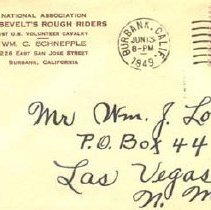 NATIONAL ASSOCIATION
SEVELT'S ROUGH RIDERS
1ST U.S. VOLUNTEER CAVALRY
WM. C. SCHNEPPLE
226 EAST SAN JOSE STREET
BURBANK, CALIFORNIA
BURBANK, CALIF.
JUN 13
8-PM
1949
Mr Wm. J. Lo
P.O. Box 44
Las Vegas
N. M